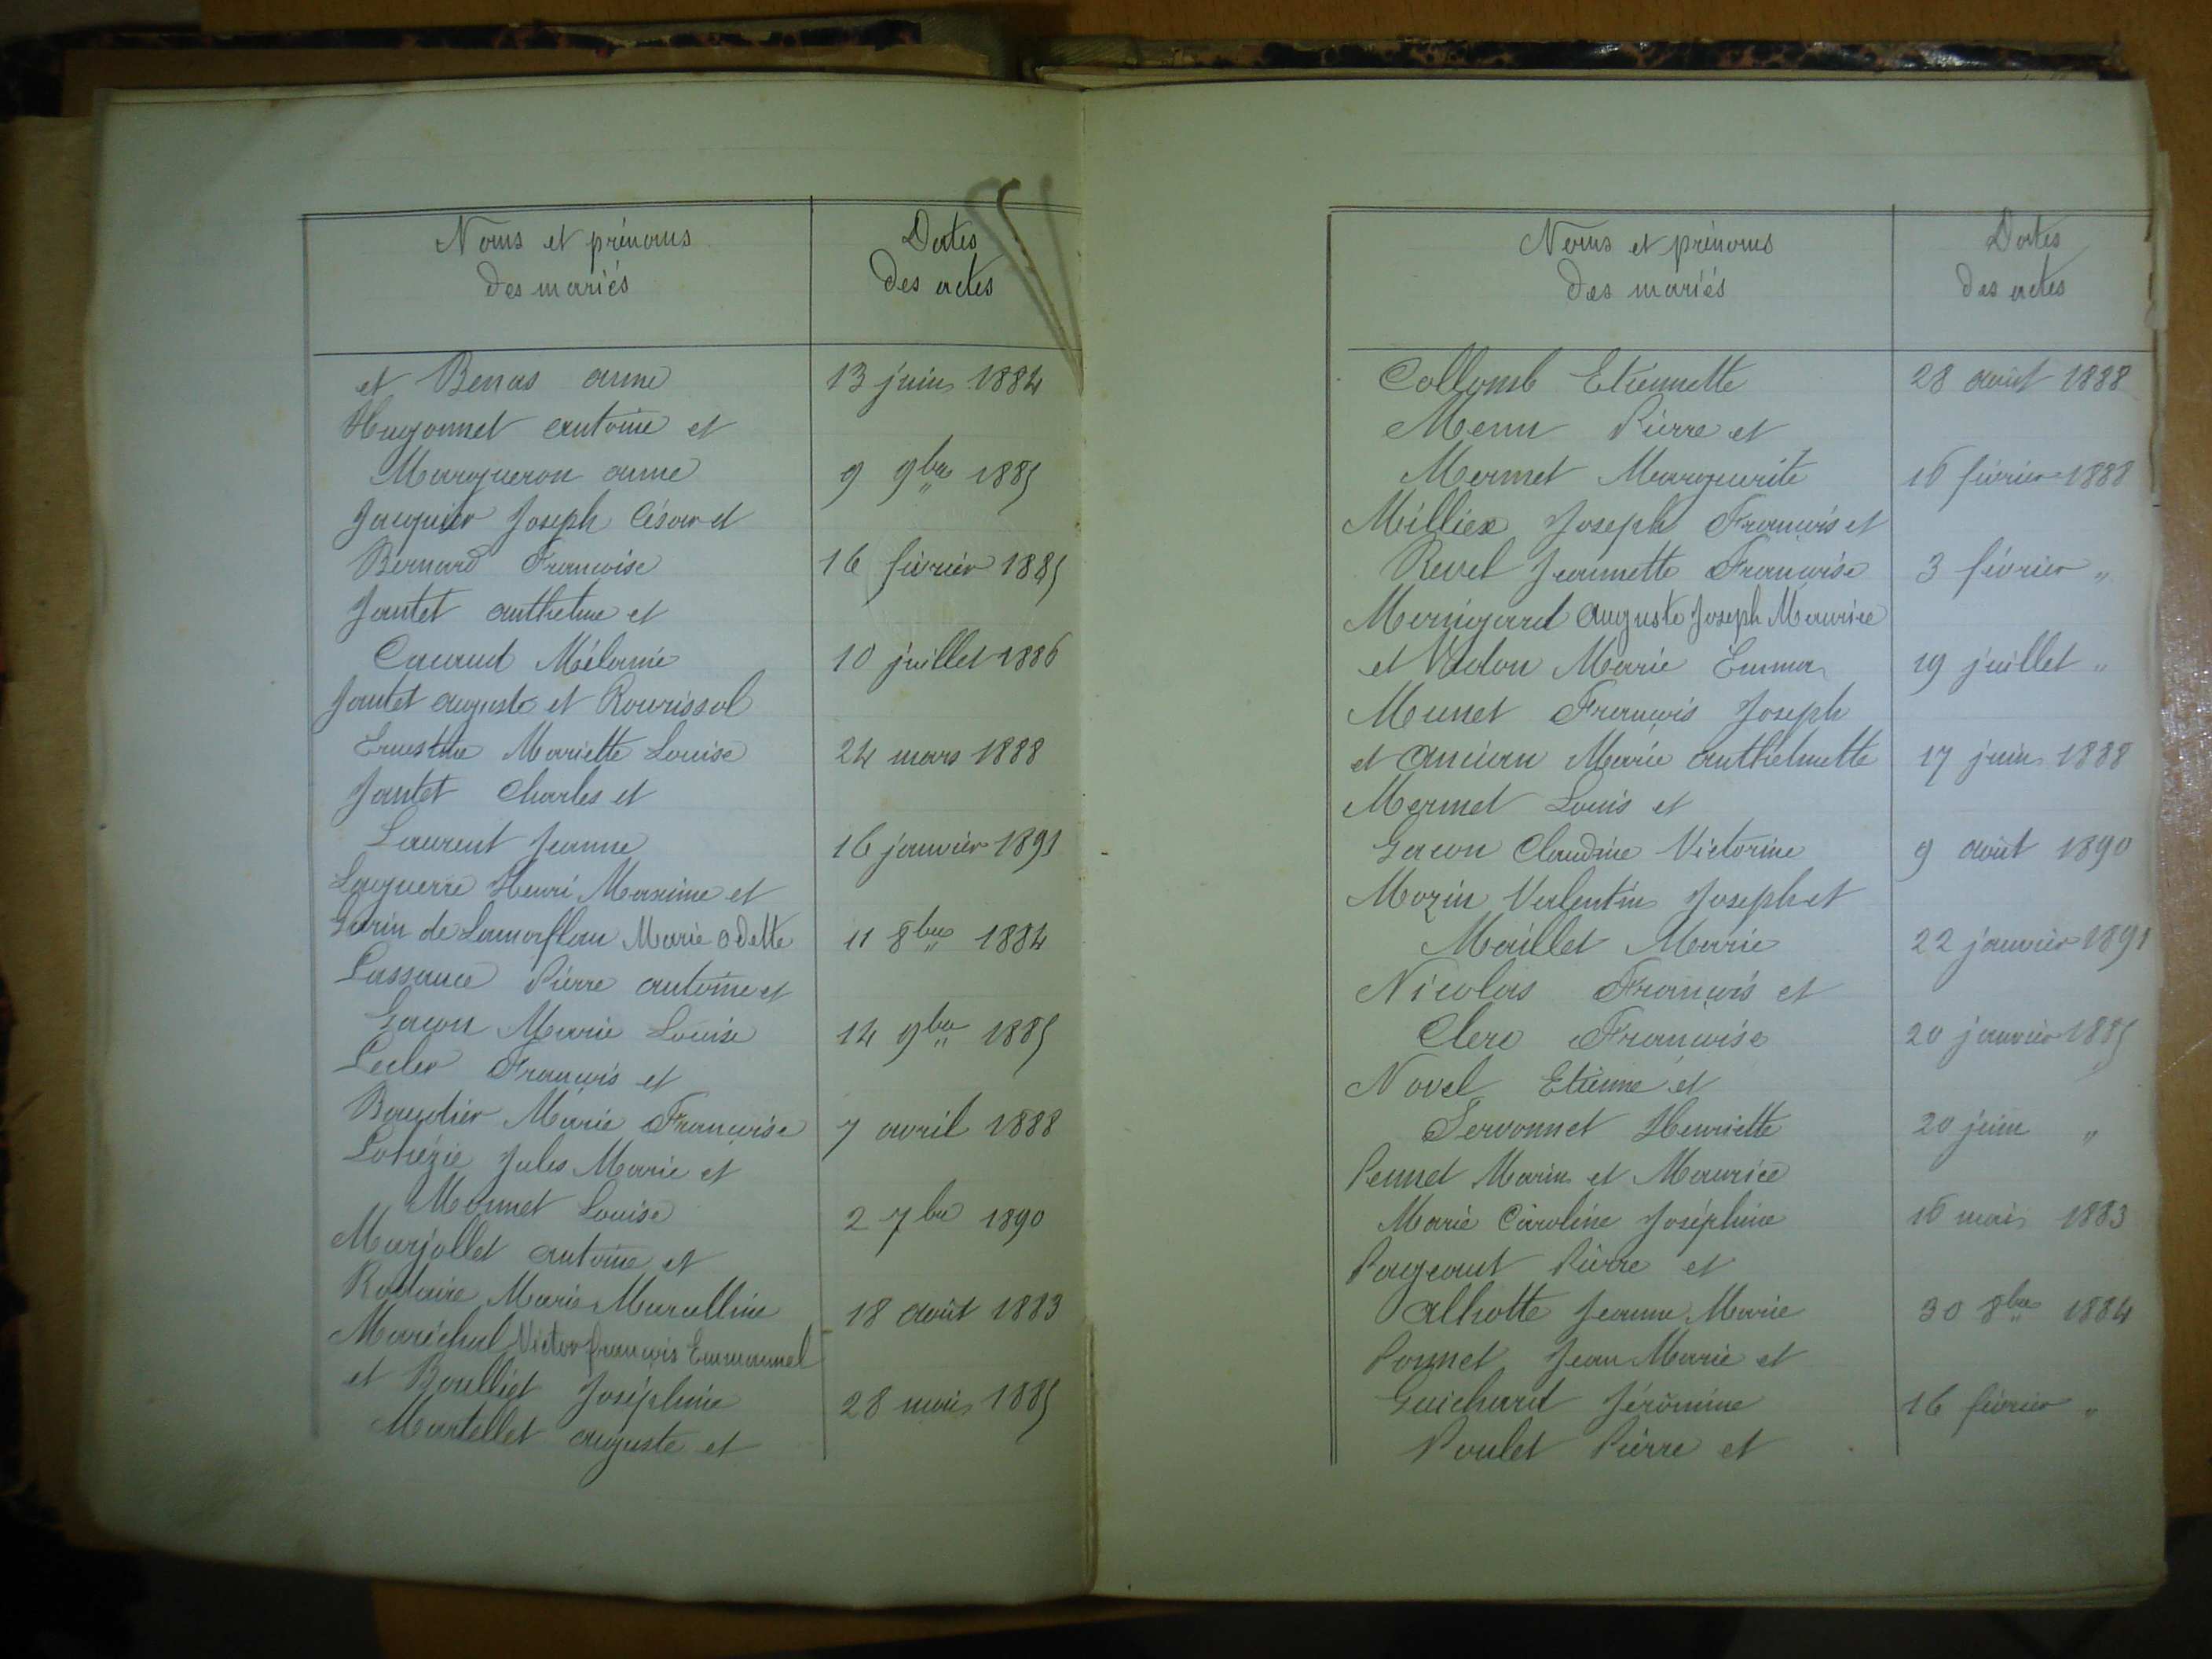 Noms et prénoms
des mariés
Dates
des actes
et Benas anne 13 juin 1884
Hugonnet antoine et
Marqueron anne 9 9bre 1885
Jacquier Joseph César et
Bernard Francoise 16 février 1885
Jantet anthelme et
Caraud Mélanie 10 juillet 1886
Jantet auguste et Rourissol
Ernestine Mariette Louise 24 mars 1888
Jantet Charles et
Laurent Jeanne 16 janvier 1891
Laguerre Henri Maxime et
Garin de Lamorflan Marie Odette 11 8bre 1884
Lassauce Pierre antoine et
Gacon Marie Louise 14 9bre 1885
Lecler François et
Baudier Marie Francoise 7 avril 1888
Lohézie Jules Marie et
Monnet Louise 2 7bre 1890
Marjollet antoine et
Rodaire Marie Marcelline 18 août 1883
Maréchal Victor françois Emmanuel
et Boulliet Joséphine 28 mai 1885
Martellet auguste et
Noms et prénoms
des mariés
Dates
des actes
Collomb Etiennette 28 août 1888
Menu Pierre et
Mermet Marguerite 16 février 1888
Milliex Joseph François et
Revel Jeannette Françoise 3 février "
Mernigard auguste Joseph Maurice
et Marie Emma 19 juillet "
Munet François Joseph
et ancian Marie anthelmette 17 juin 1888
Mermet Louis et
Gacon Claudine Victorine 9 août 1890
Mozin Valentin Joseph et
Maillet Marie 22 janvier 1891
Nicolas François et
Clerc Françoise 20 janvier 1885
Novel Etienne et
Servonnet Henriette 20 juin "
Pennet Marin et Maurice
Marie Caroline Joséphine 16 mai 1883
Pageaut Pierre et
alhotte Jeanne Marie 30 8bre 1884
Ponnet Jean Marie et
Guichard Jéromine 16 février "
Poulet Pierre et